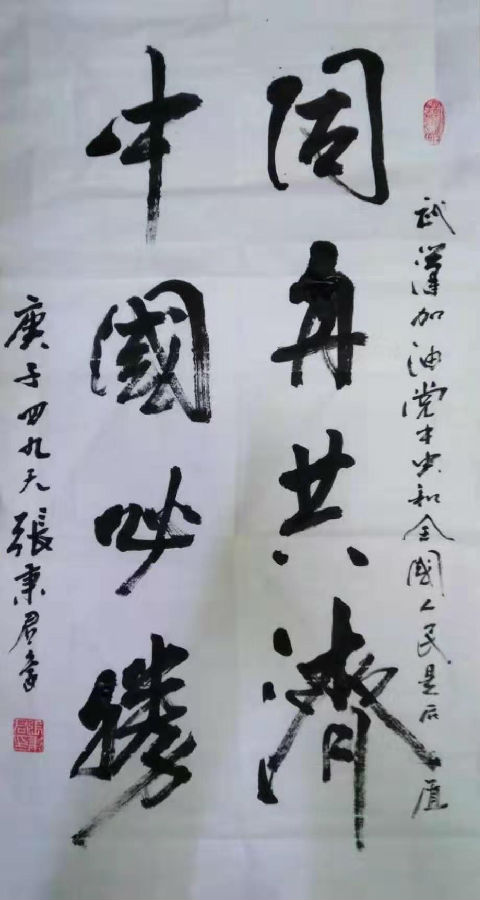 同舟共濟
中國必勝
武漢加油党中央和全國人民是后盾
庚子四九天張秉君書